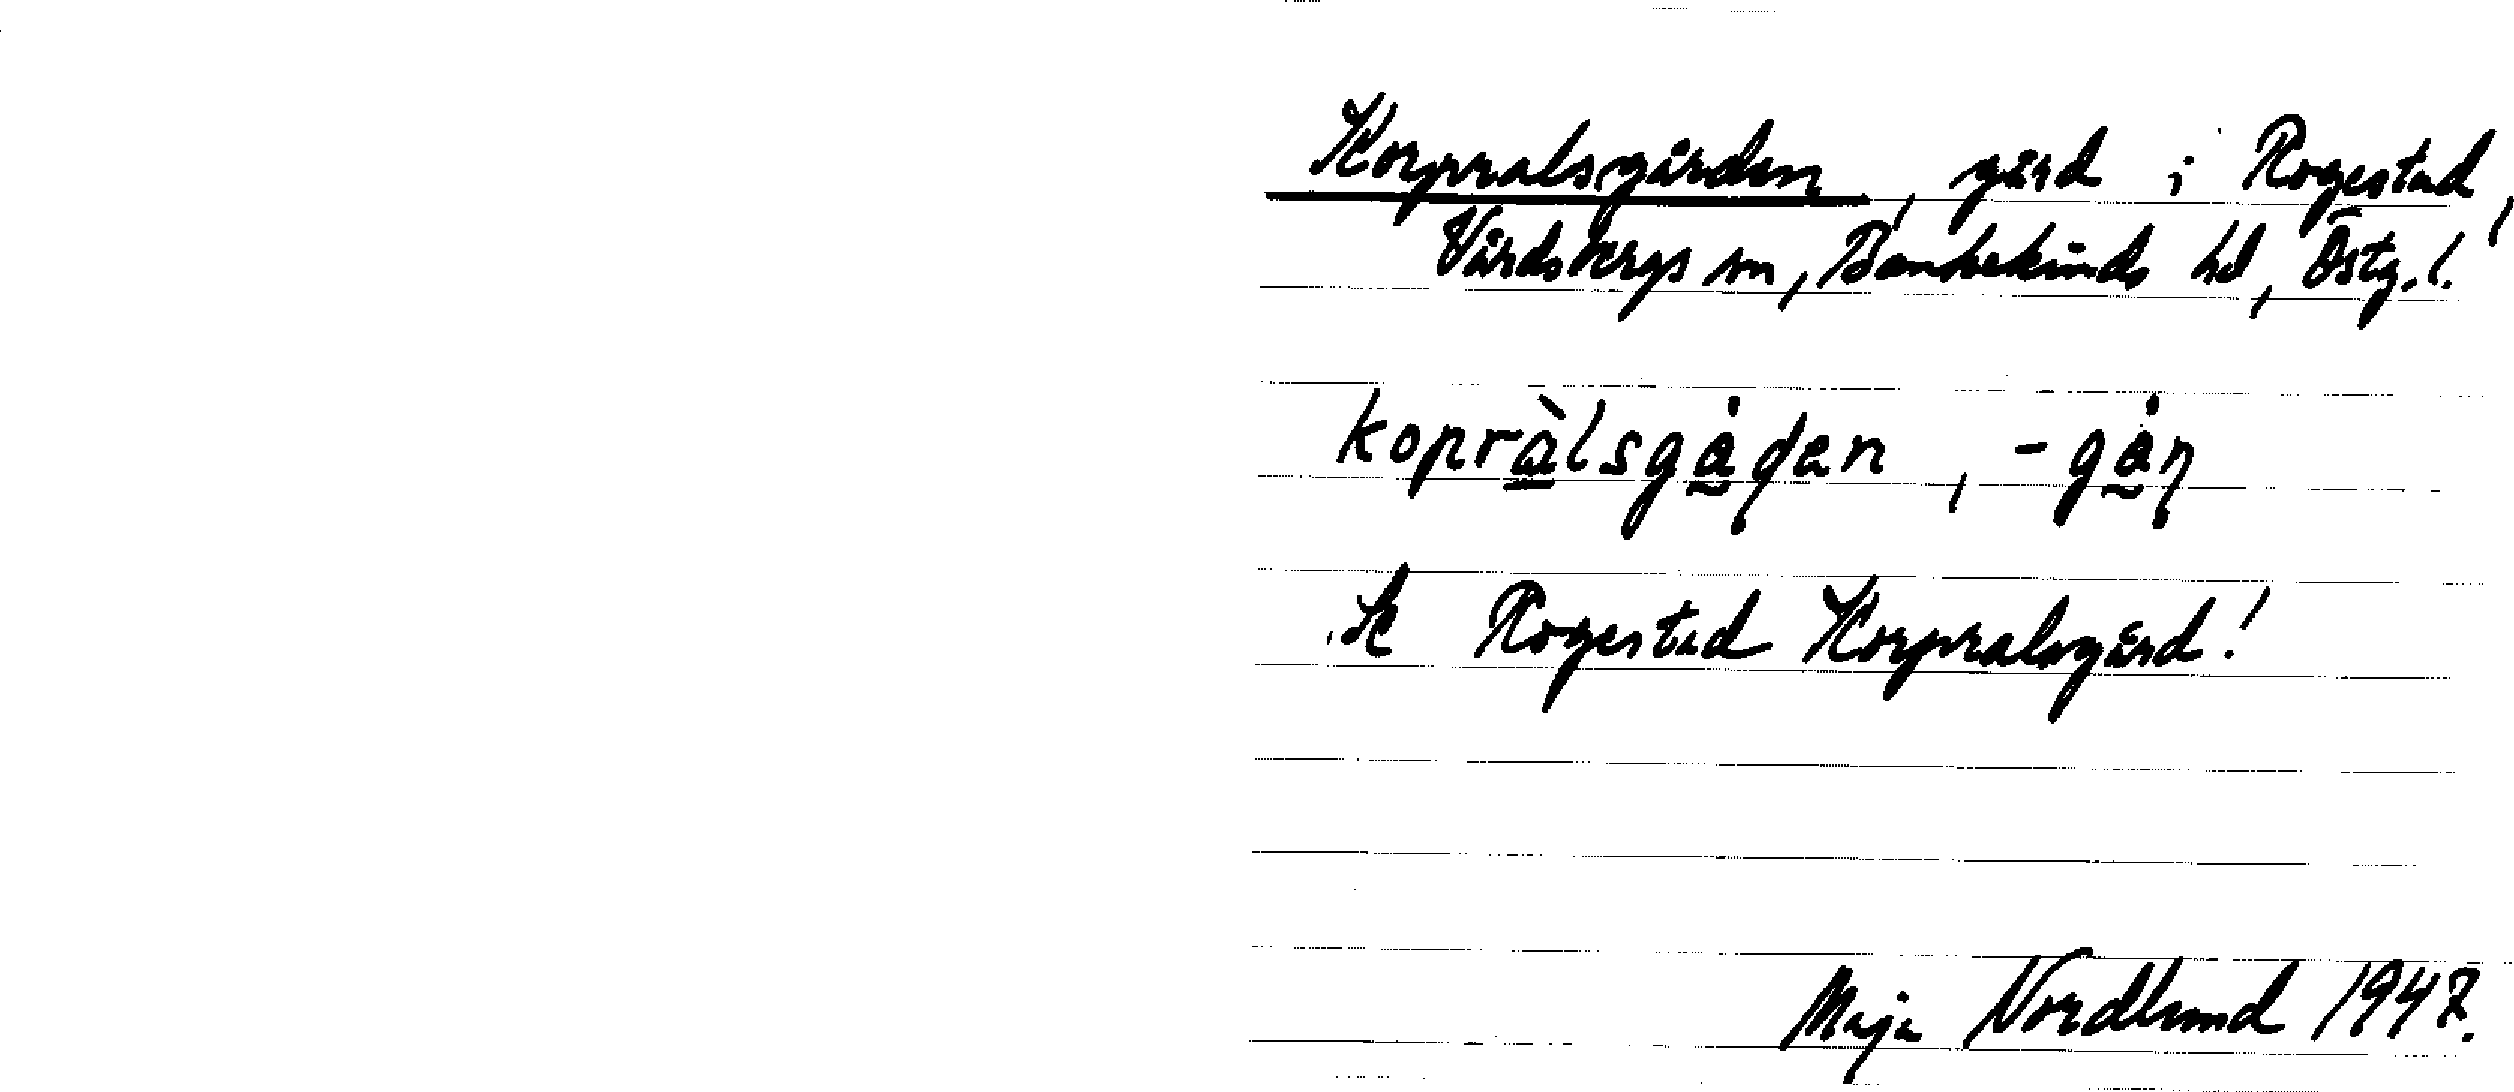 Korpralsgården, gård i Rogestad,
Vårdsbergs sn, Bankekinds hd, Östg.l.
kopràlsgåḍen, -gåṇ
Se Rogestad Korpralsgård!
Maja Nordlund 1947.